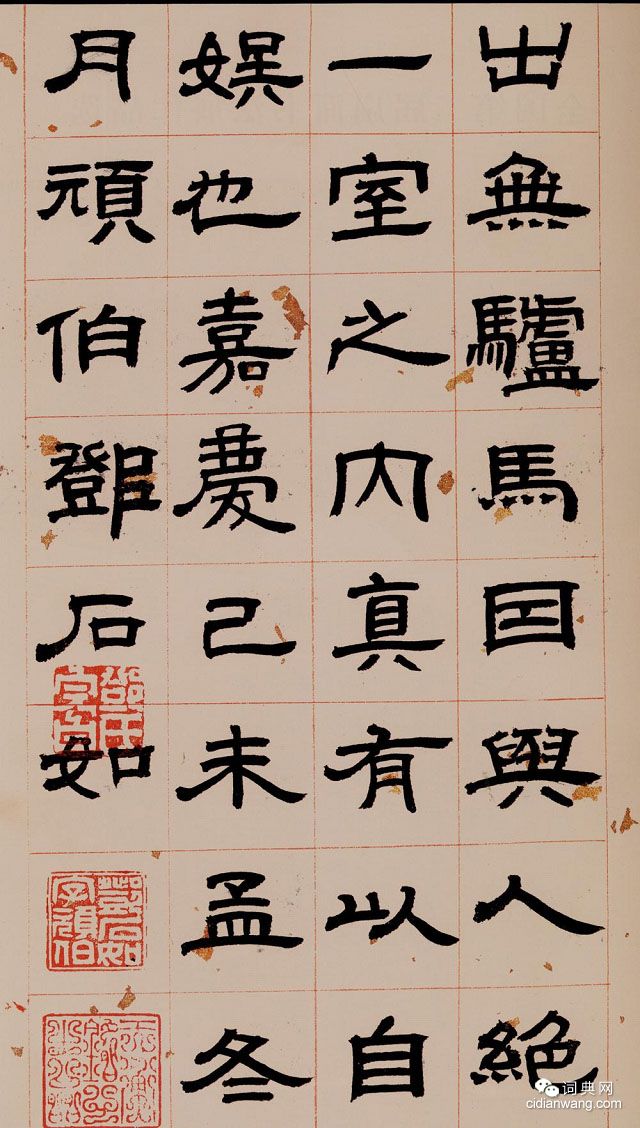 出無驢馬因與人絕
一室之內真有以自
娛也嘉慶己未孟冬
月頑伯鄧石如
鄧石如
字頑伯
词典网
cidianwang.com